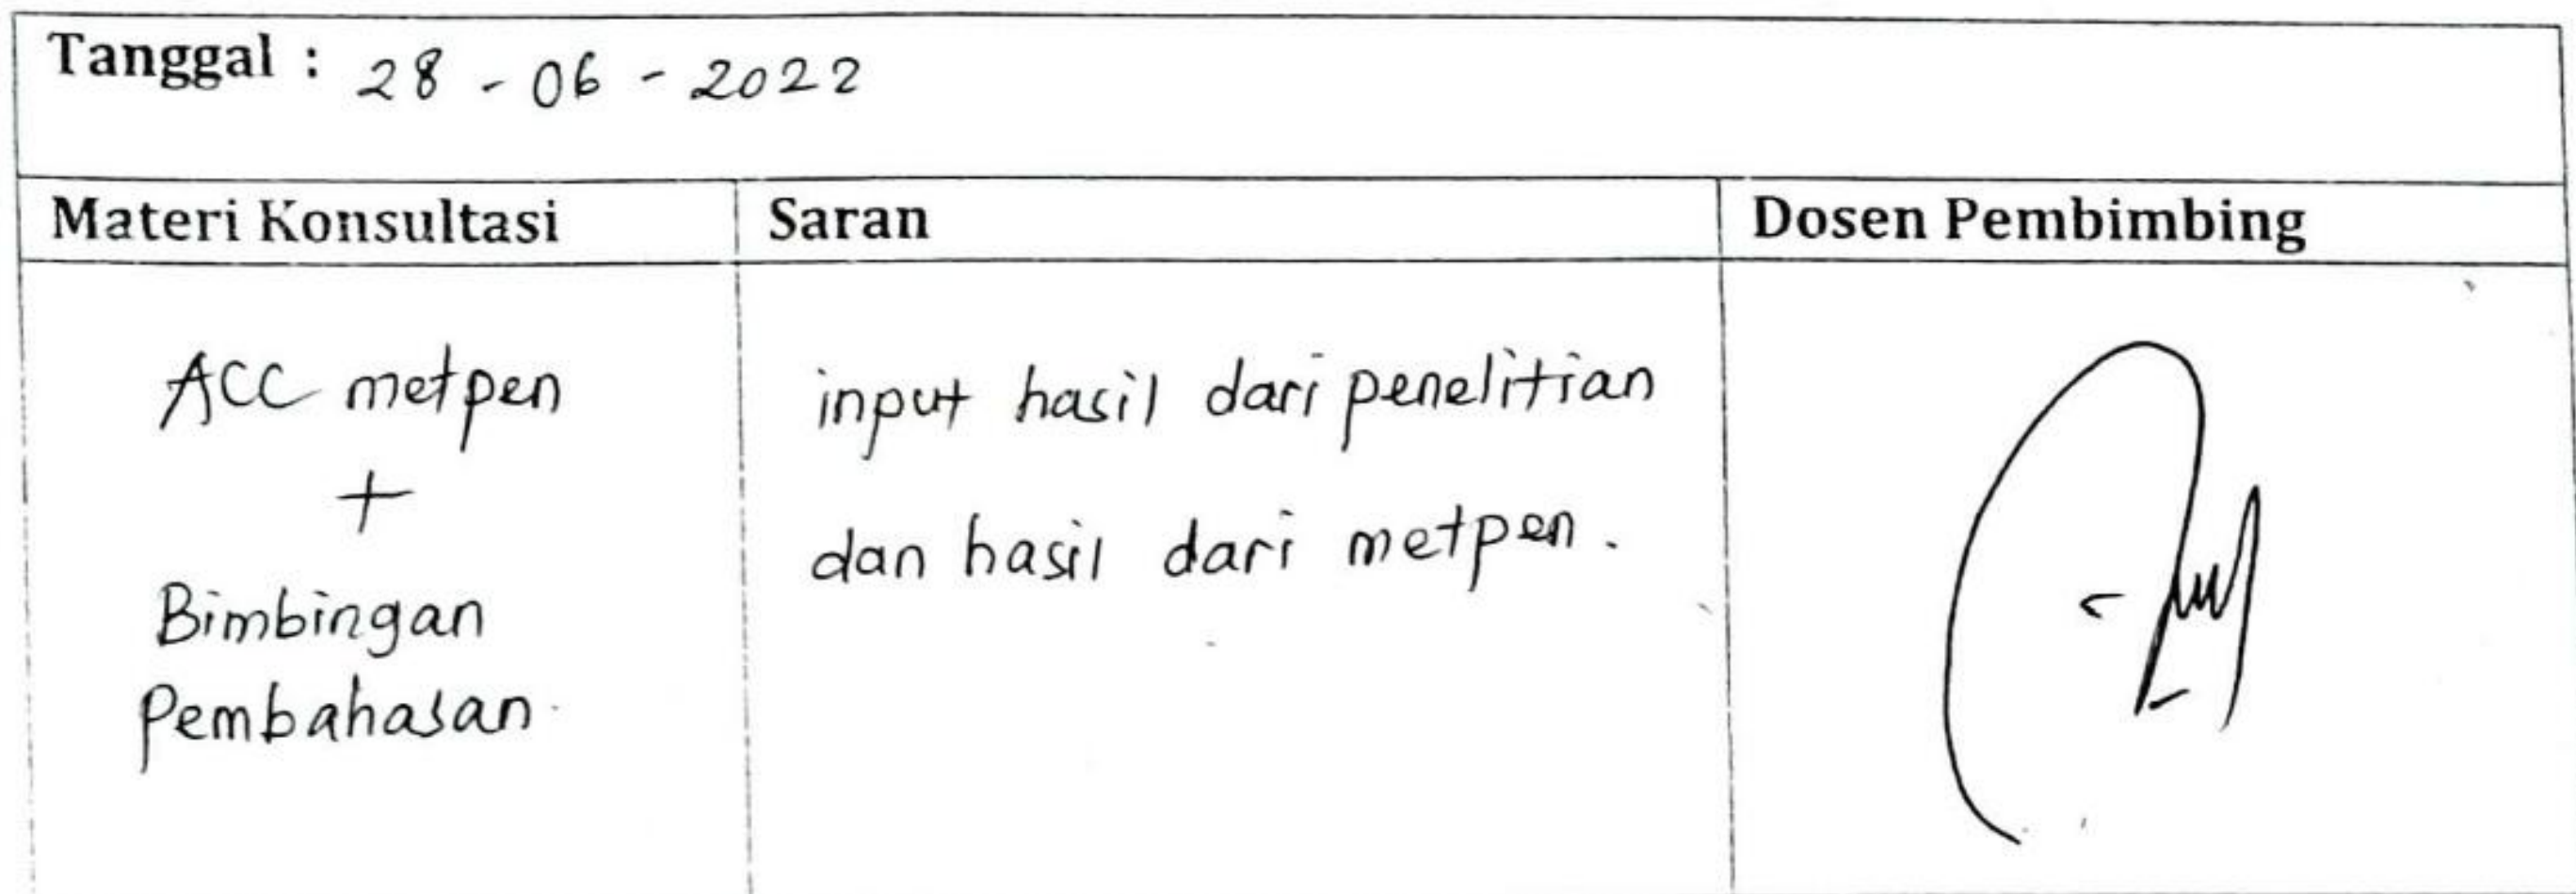 Tanggal : 28 - 06 - 2022
Materi Konsultasi
Saran
Dosen Pembimbing
ACC metpen
+
Bimbingan
Pembahasan
input hasil dari penelitian
dan hasil dari metpen.